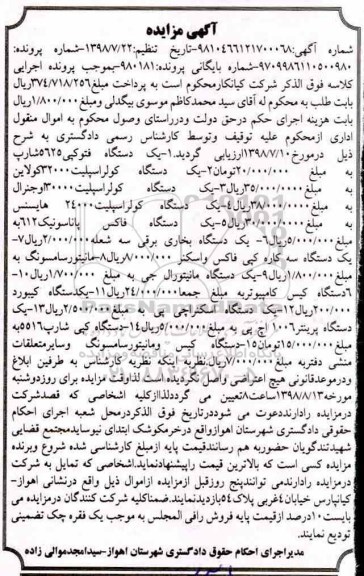 آگهی مزایده
شماره آگهی:۹۸۱۰۴۶۶۱۲۱۷۰۰۰۶۸-تاریخ تنظیم:۱۳۹۸/۷/۲۲-شماره پرونده:
۹۷۰۹۹۸۶۱۱۰۵۰۰۹۸۰-شماره بایگانی پرونده:۹۸۰۱۸۱-بموجب پرونده اجرایی
کلاسه فوق الذکر شرکت کیانکارمحکوم است به پرداخت مبلغ۳۷۴/۷۱۸/۲۵۶ریال
بابت طلب به محکوم له آقای سید محمدکاظم موسوی بیگدلی ومبلغ۱/۸۰۰/۰۰۰ریال
بابت هزینه اجرای حکم درحق دولت ودرراستای وصول محکوم به اموال منقول
اداری ازمحکوم علیه توقیف وتوسط کارشناس رسمی دادگستری به شرح
ذیل درمورخ۱۳۹۸/۷/۱۰ارزیابی گردید.۱-یک دستگاه فتوکپی۵۶۲۵شارپ
به مبلغ۲۰/۰۰۰/۰۰۰تومان۲-یک دستگاه کولراسپلیت۳۲۰۰۰کولاین
به مبلغ۳۵/۰۰۰/۰۰۰ریال۳-یک دستگاه کولراسپلیت۳۰۰۰۰وجنرال
به مبلغ۳۸/۰۰۰/۰۰۰ریال۴-یک دستگاه کولراسپلیت۲۴۰۰۰ هایسنس
به مبلغ۳۰/۰۰۰/۰۰۰ریال۵-یک دستگاه فاکس پاناسونیک۶۱۲به
مبلغ۵/۰۰۰/۰۰۰ریال۶- یک دستگاه بخاری برقی سه شعله۲/۰۰۰/۰۰۰ریال۷-
یک دستگاه سه کاره کپی فاکس واسکنر ۸/۰۰۰/۰۰۰ریال۸-مانیتورسامسونگ به
مبلغ۱/۸۰۰/۰۰۰ریال۹-یک دستگاه مانیتورال جی به مبلغ ۱/۷۰۰/۰۰۰ریال۱۰-
۶دستگاه کیس کامپیوتربه مبلغ جمعا۲۴/۰۰۰/۰۰۰ریال۱۱-یکدستگاه کیبورد
۲۰۰/۰۰۰ریال۱۲-یک دستگاه اسکنراچی پی به مبلغ ۲/۵۰۰/۰۰۰ریال۱۳-یک
دستگاه پرینتر۱۰۰۶ اچ پی به مبلغ۵/۰۰۰/۰۰۰ریال۱۴-دستگاه کپی شارپ۵۵۱۶به
مبلغ۱۵/۰۰۰/۰۰۰تومان۱۵-دستگاه کیس ومانیتورسامسونگ وسایرمتعلقات
منشی دفتربه مبلغ۷/۰۰۰/۰۰۰ریال:نظربه اینکه نظریه کارشناس به طرفین ابلاغ
ودرموعدقانونی هیچ اعتراضی واصل نگردیده است لذاوقت مزایده برای روزدوشنبه
مورخه۱۳۹۸/۸/۱۳ساعت۸تعیین می گرددلذاازکلیه اشخاصی که قصدشرکت
درمزایده رادارنددعوت می شوددرتاریخ فوق الذکردرمحل شعبه اجرای احکام
حقوقی دادگستری شهرستان اهوازواقع درخرمکوشک ابتدای نیوسایدمجتمع قضایی
شهیدتندگویان حضوربه هم رسانندقیمت پایه ازمبلغ کارشناسی شده شروع وبرنده
مزایده کسی است که بالاترین قیمت راپیشنهادنماید.اشخاصی که تمایل به شرکت
درمزایده رادارندمی توانندپنج روزقبل ازمزایده ازاموال ذیل واقع درنشانی اهواز-
کیانپارس خیابان۴غربی پلاک۵۴بازدیدنمایند.ضمناکلیه شرکت کنندگان درمزایده می
بایست۱۰درصد ازقیمت پایه فروش رافی المجلس به موجب یک فقره چک تضمینی
تودیع نمایند.
مدیراجرای احکام حقوق دادگستری شهرستان اهواز-سیدامجدموالی زاده